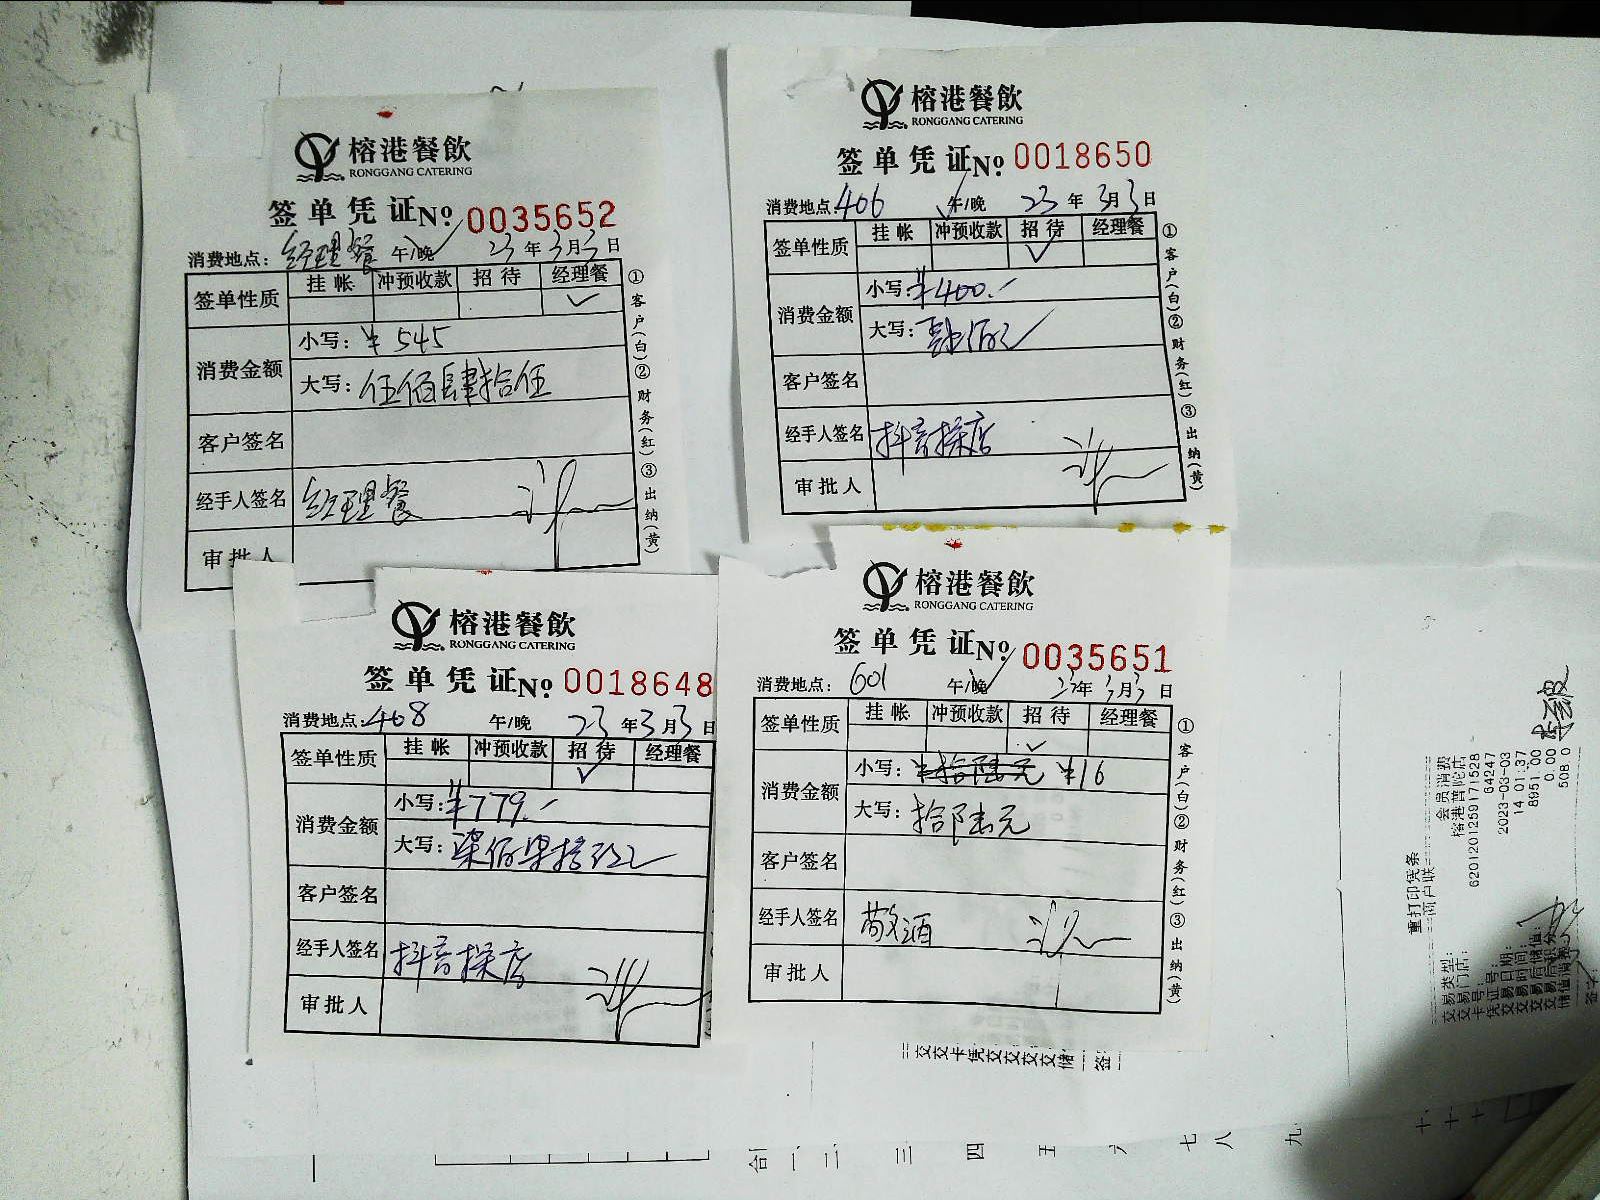 榕港餐飲
RONGGANG CATERING
签单凭证 No 0035652
消费地点: 经理餐 午/晚 23年3月3日
签单性质 挂帐 冲预收款 招待 经理餐
消费金额 小写: ¥545
大写: 伍佰肆拾伍
客户签名
经手人签名 经理餐
审批人
①客户(白)②财务(红)③出纳(黄)
榕港餐飲
RONGGANG CATERING
签单凭证 No 0018650
消费地点: 406 午/晚 23年3月3日
签单性质 挂帐 冲预收款 招待 经理餐
消费金额 小写: ¥400.-
大写: 肆佰元
客户签名
经手人签名 抖音探店
审批人
①客户(白)②财务(红)③出纳(黄)
榕港餐飲
RONGGANG CATERING
签单凭证 No 0018648
消费地点: 408 午/晚 23年3月3日
签单性质 挂帐 冲预收款 招待 经理餐
消费金额 小写: ¥779.-
大写: 柒佰柒拾玖元
客户签名
经手人签名 抖音探店
审批人
榕港餐飲
RONGGANG CATERING
签单凭证 No 0035651
消费地点: 601 午/晚 23年3月3日
签单性质 挂帐 冲预收款 招待 经理餐
消费金额 小写: ¥拾陆元 ¥16
大写: 拾陆元
客户签名
经手人签名 敬酒
审批人
①客户(白)②财务(红)③出纳(黄)
重打印凭条
商户联
交易类型: 会员消费
交易门店: 榕港普陀店
卡号: 6201201259171528
凭证号: 64247
交易日期: 2023-03-03
交易时间: 14:01:37
交易后储值: 8951.00
交易后积分: 0.00
储值消费: 508.0
签名:
合 一 二 三 四 五 六 七 八 九 十